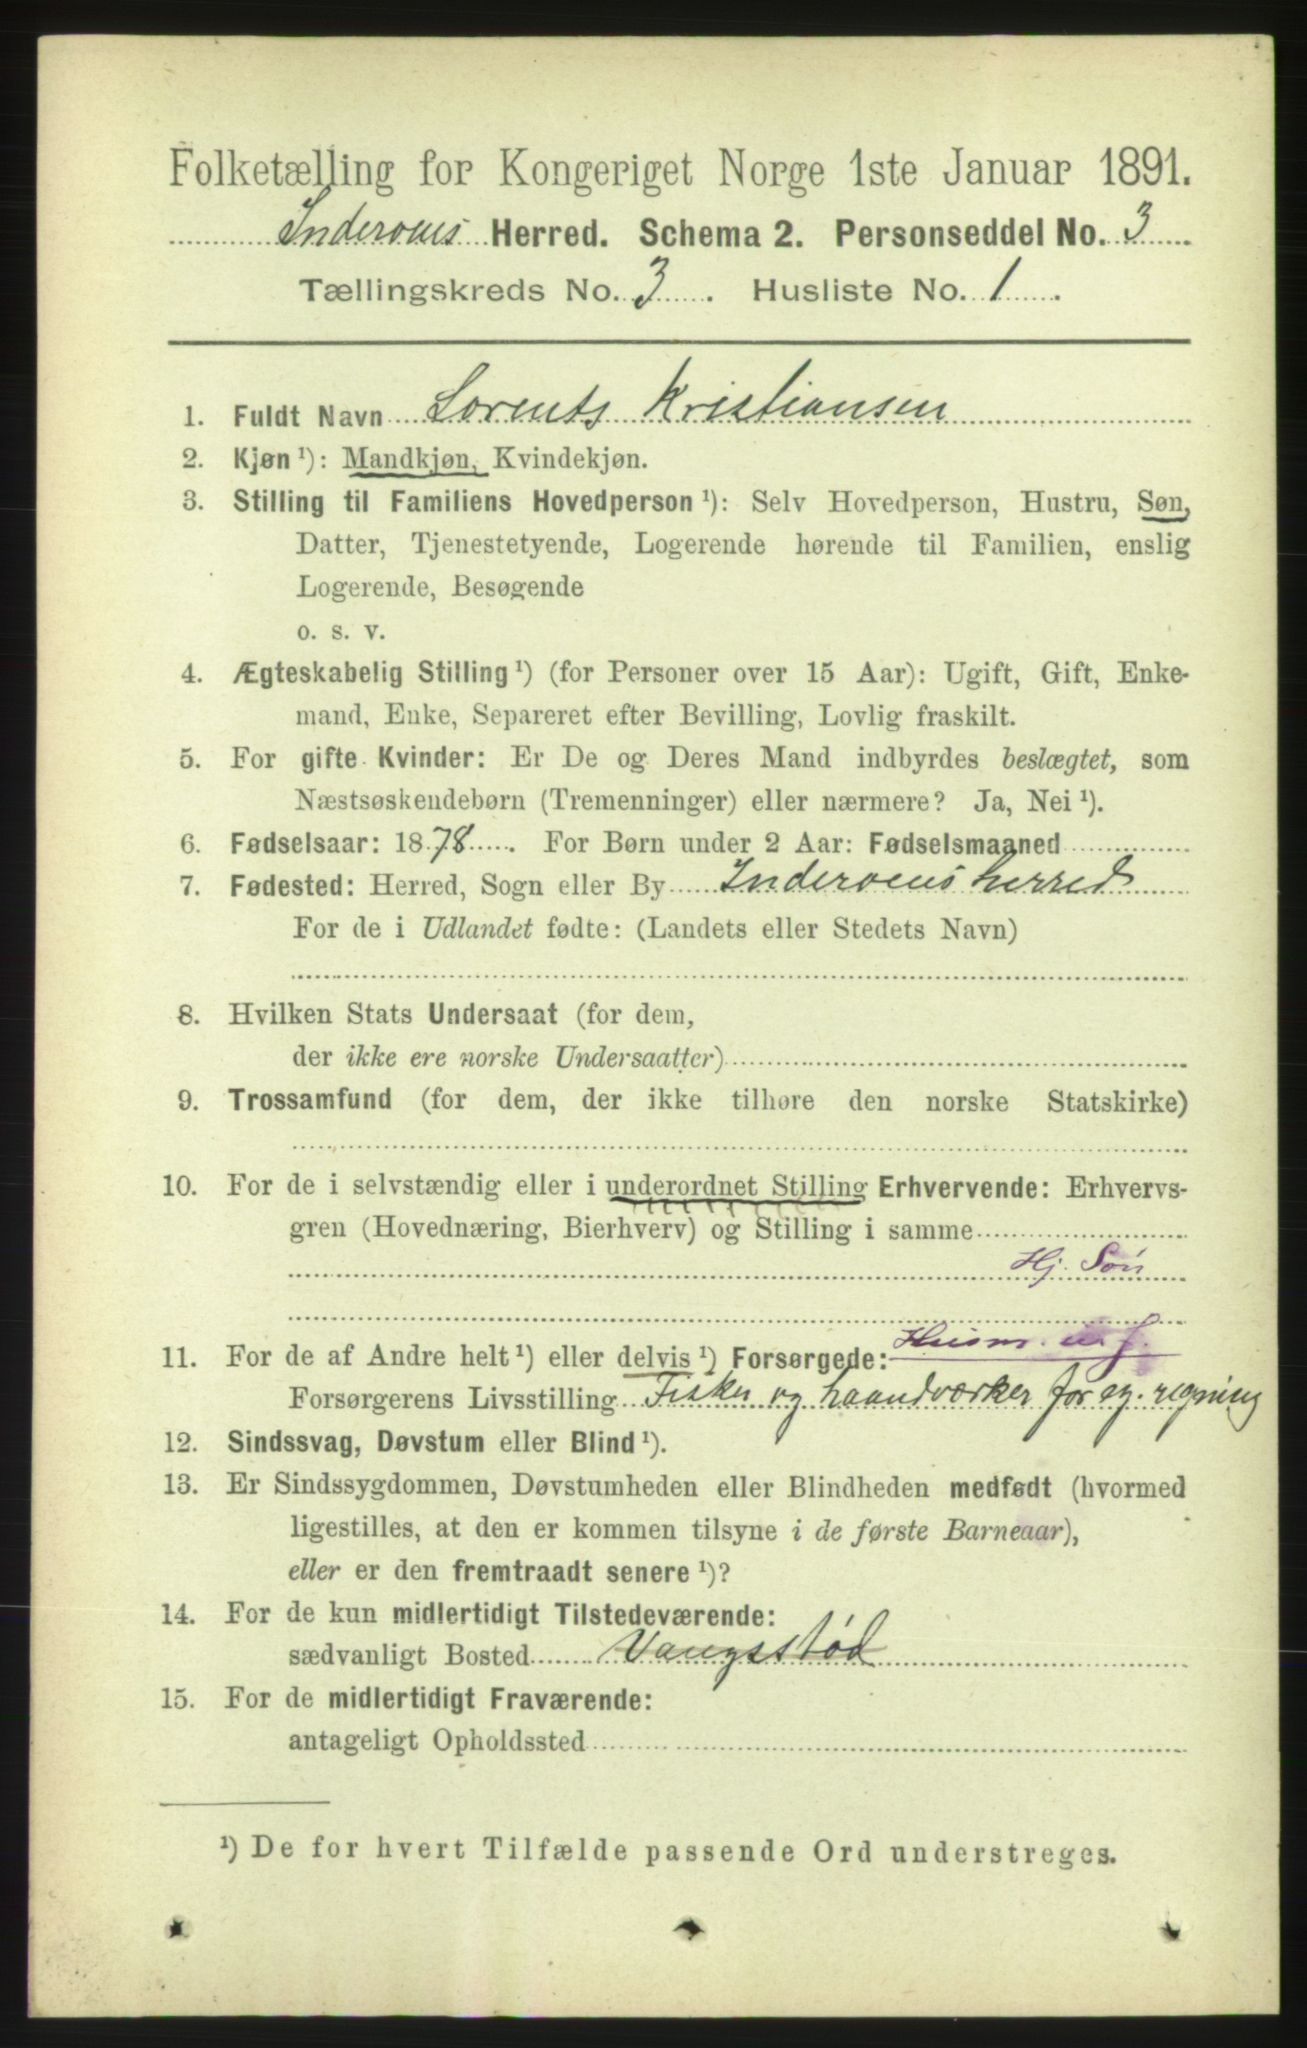 Folketælling for Kongeriget Norge 1ste Januar 1891.
Inderøens Herred. Schema 2. Personseddel No. 3
Tællingskreds No. 3. Husliste No. 1.
1. Fuldt Navn Lorents Kristiansen
2. Kjøn ¹): Mandkjøn, Kvindekjøn.
3. Stilling til Familiens Hovedperson ¹): Selv Hovedperson, Hustru, Søn,
Datter, Tjenestetyende, Logerende hørende til Familien, enslig
Logerende, Besøgende
o. s. v.
4. Ægteskabelig Stilling ¹) (for Personer over 15 Aar): Ugift, Gift, Enke-
mand, Enke, Separeret efter Bevilling, Lovlig fraskilt.
5. For gifte Kvinder: Er De og Deres Mand indbyrdes beslægtet, som
Næstsøskendebørn (Tremenninger) eller nærmere? Ja, Nei ¹).
6. Fødselsaar: 1878. For Børn under 2 Aar: Fødselsmaaned
7. Fødested: Herred, Sogn eller By Inderøens herred
For de i Udlandet fødte: (Landets eller Stedets Navn)
8. Hvilken Stats Undersaat (for dem,
der ikke ere norske Undersaatter)
9. Trossamfund (for dem, der ikke tilhøre den norske Statskirke)
10. For de i selvstændig eller i underordnet Stilling Erhvervende: Erhvervs-
gren (Hovednæring, Bierhverv) og Stilling i samme
Hj. Søn
11. For de af Andre helt ¹) eller delvis ¹) Forsørgede: Husm. m. J.
Forsørgerens Livsstilling Fisker og haandværker for eg. regning
12. Sindssvag, Døvstum eller Blind ¹).
13. Er Sindssygdommen, Døvstumheden eller Blindheden medfødt (hvormed
ligestilles, at den er kommen tilsyne i de første Barneaar),
eller er den fremtraadt senere ¹)?
14. For de kun midlertidigt Tilstedeværende:
sædvanligt Bosted Vangsstød
15. For de midlertidigt Fraværende:
antageligt Opholdssted
¹) De for hvert Tilfælde passende Ord understreges.